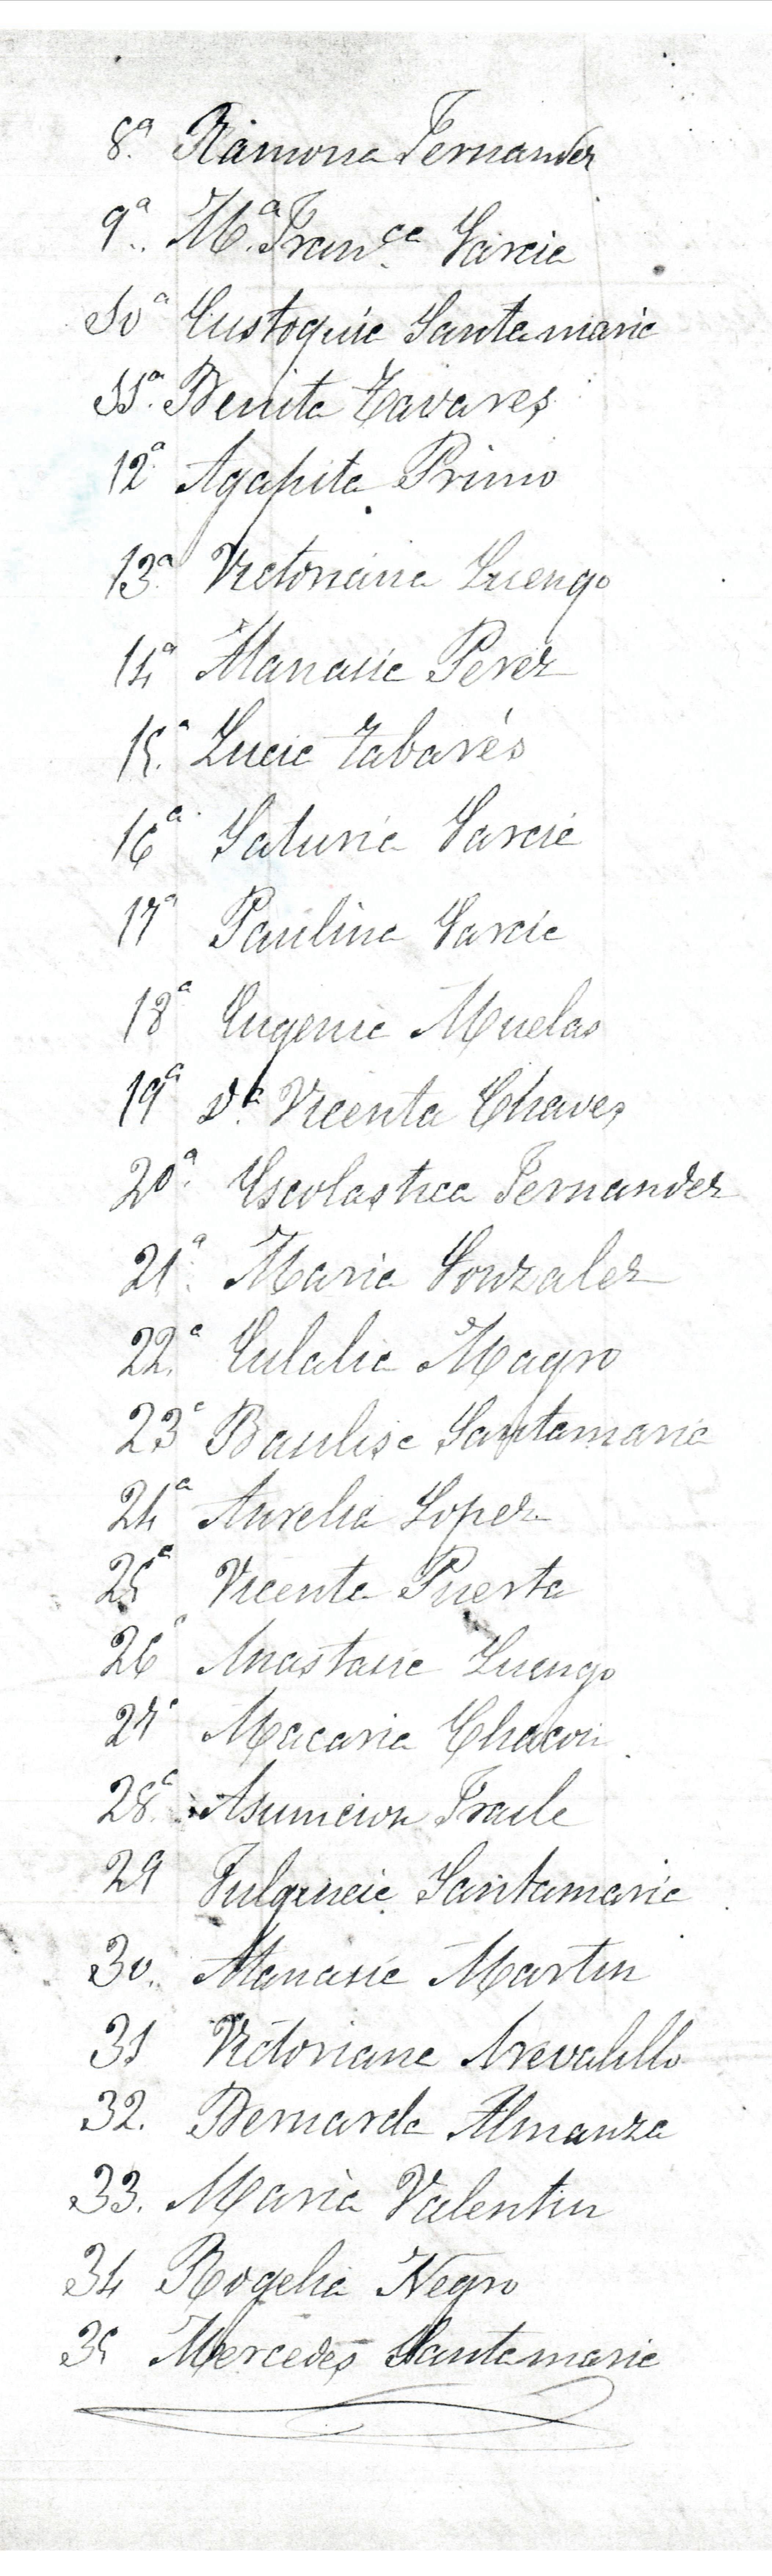 8ª. Ramona Fernandez
9ª. Mª. Franca. Garcia
10ª Eustoquia Santamaria
11ª. Benita Tavares
12ª Agapita Primo
13ª. Victoriana Luengo
14ª Atanasia Perez
15.ª Lucia Tabarés
16ª Saturia Garcia
17ª Paulina Garcia
18ª Eugenia Muelas
19ª Dª. Vicenta Chaves
20ª. Escolastica Fernandez
21ª. Maria Gonzalez
22.ª Eulalia Magro
23ª Baulisa Santamaria
24ª Aurelia Lopez
25ª Vicenta Puerta
26ª Anastasia Luengo
27ª Macaria Chacon
28ª. Asuncion Fraile
29 Fulgencia Santamaria
30. Atanasia Martin
31 Victoriana Arevalillo
32. Bernarda Almanza
33. Maria Valentin
34 Rogelia Negro
35 Mercedes Santamaria